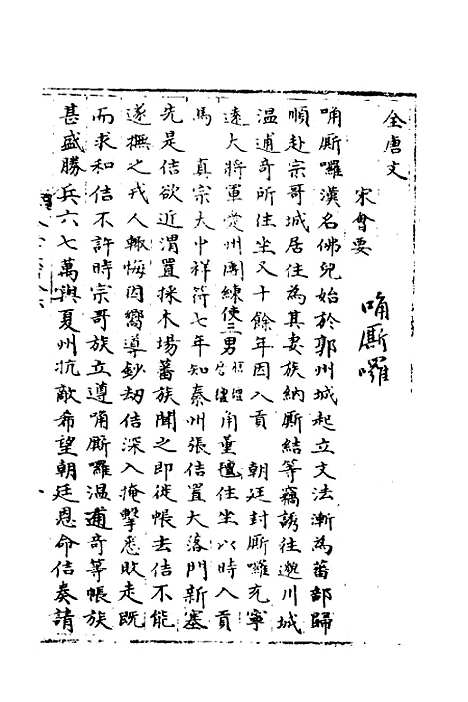 全唐文
宋會要
唃厮囉
唃厮囉漢名佛兒始於鄯州城起立文法漸為蕃部歸
順赴宗哥城居住為其妻族納厮結等竊誘往邈川城
溫逋奇所住坐又十餘年因入貢　朝廷封厮囉充寧
遠大將軍愛州團練使三男　角重檀住坐以時入貢
馬　真宗大中祥符七年知秦州張佶置大落門新寨
先是佶欲近渭置採木場蕃族聞之即徙帳去佶不能
遂撫之戎人輙悔因嚮導鈔劫佶深入掩擊悉敗走既
而求和佶不許時宗哥族立遵唃厮囉溫逋奇等帳族
甚盛勝兵六七萬與夏州抗敵希望朝廷恩命佶奏請